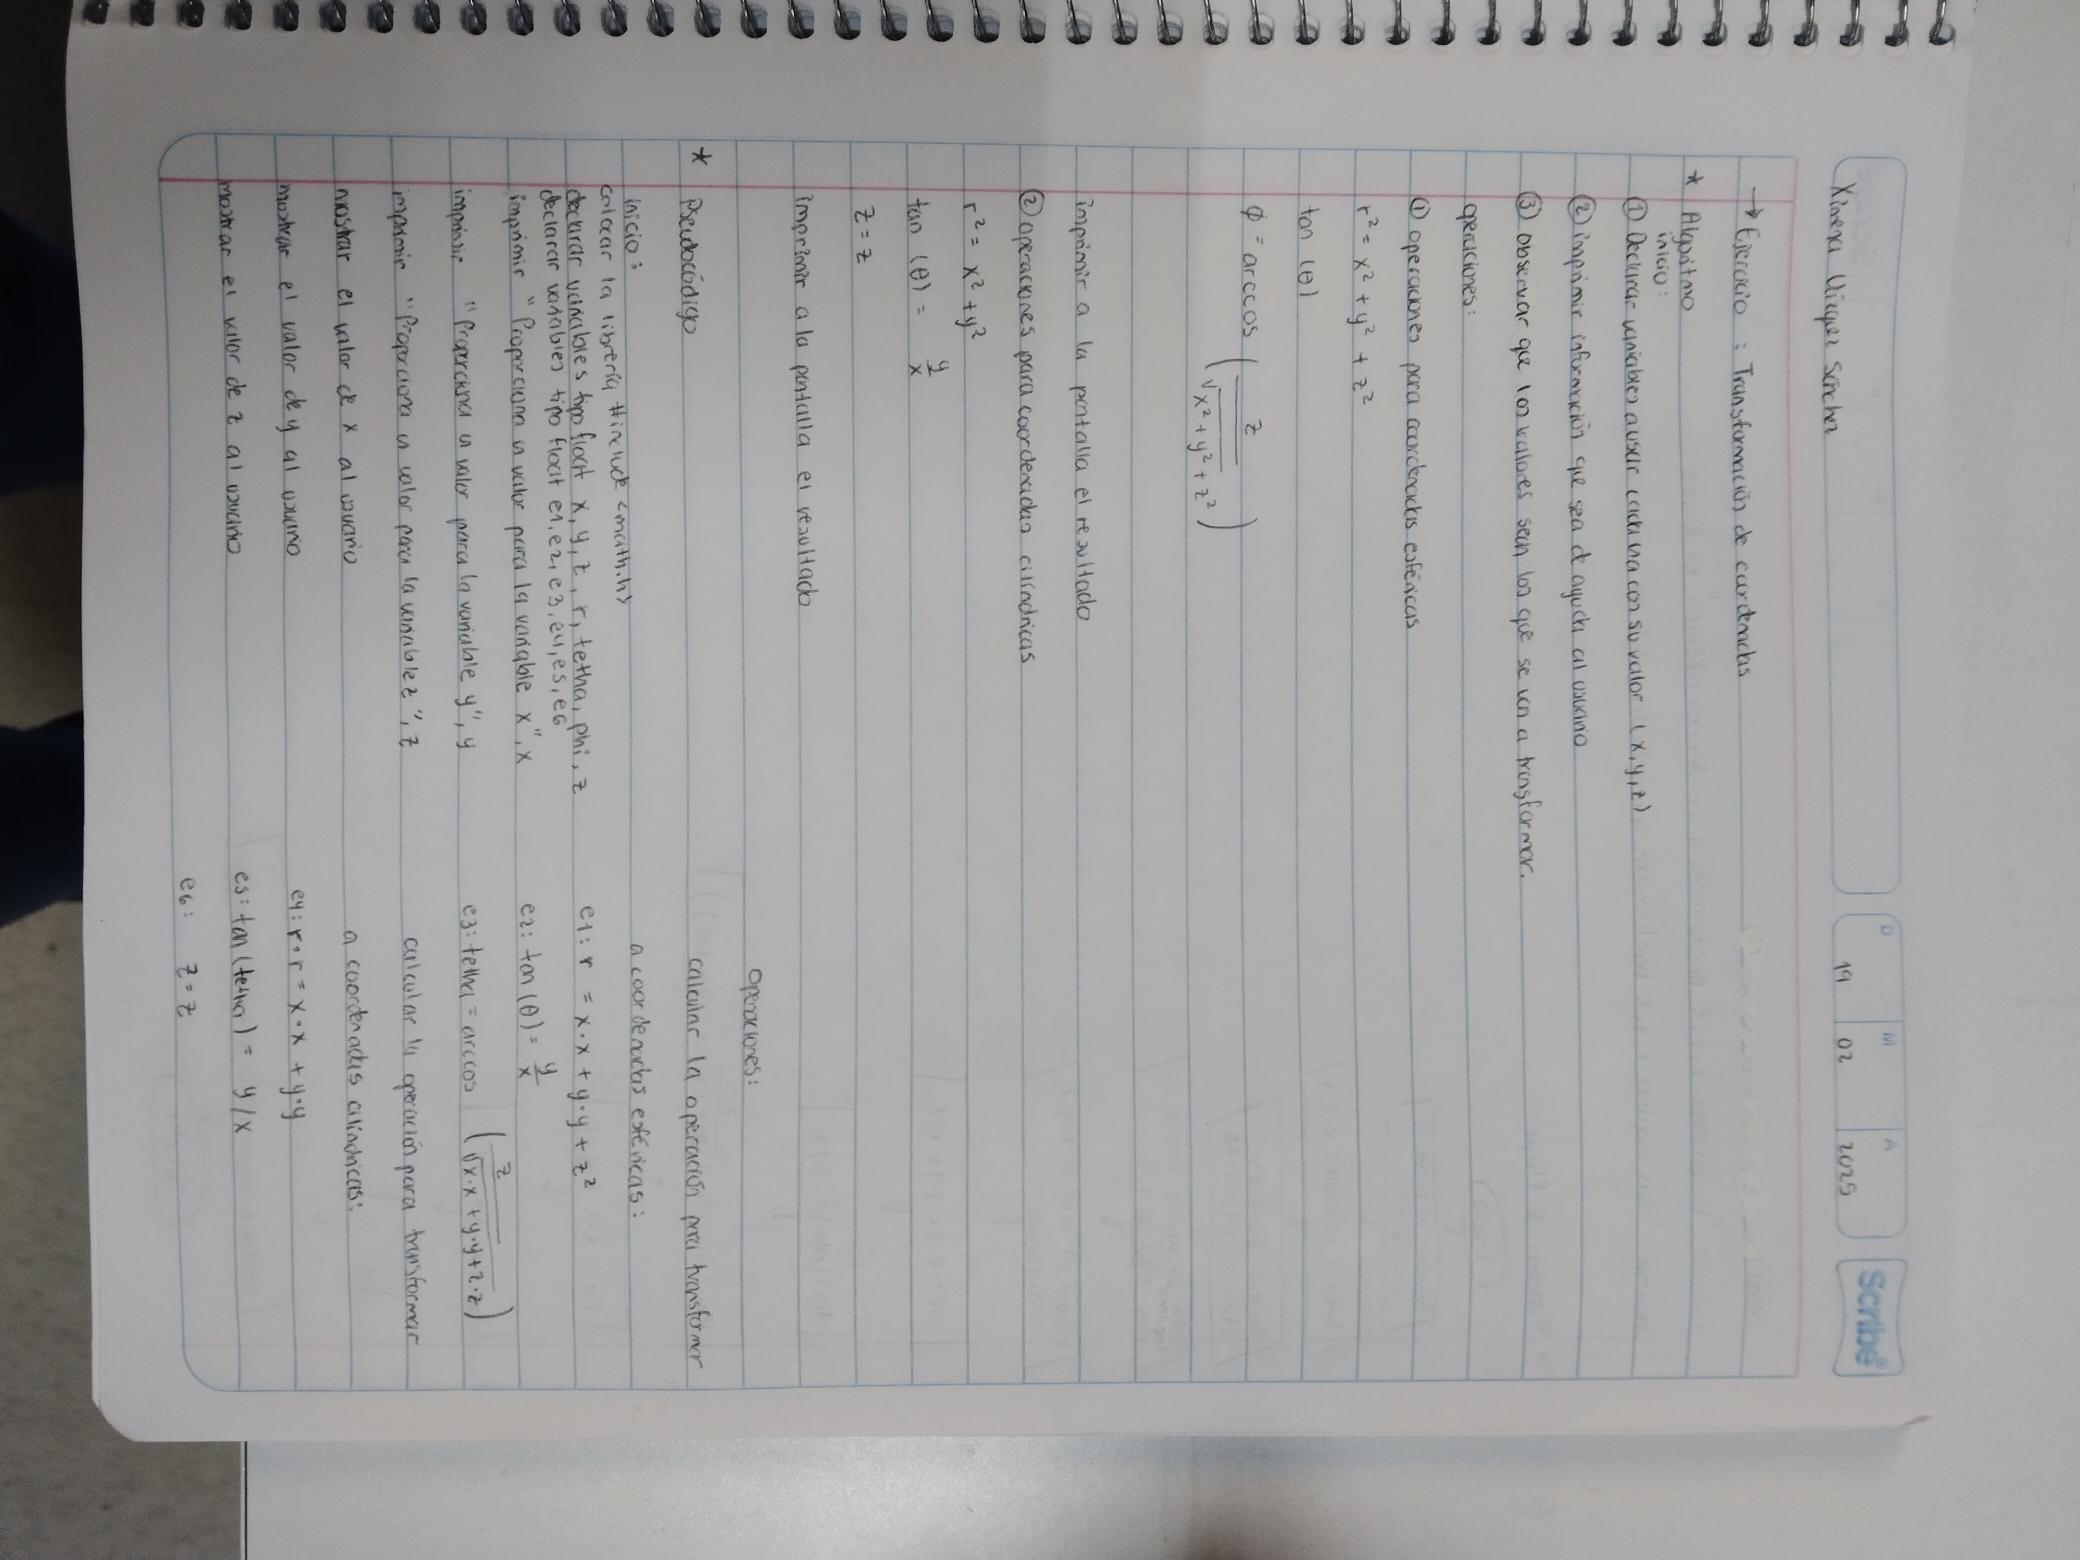 Ximena Vazquez Sánchez
D 19 M 02 A 2025
Scribe
→ Ejercicio : Transformación de cordenadas
* Algoritmo
inicio:
① Declarar variables a usar cada una con su valor (x,y,z)
② imprimir información que sea de ayuda al usuario
③ observar que los valores sean los que se van a transformar.
operaciones:
① operaciones para coordenadas esféricas
r² = x² + y² + z²
tan (θ)
φ = arccos ( z / √x² + y² + z² )
imprimir a la pantalla el resultado
② operaciones para coordenadas cilíndricas
r² = x² + y²
tan (θ) = y/x
z = z
imprimir a la pantalla el resultado
* Pseudocódigo
inicio:
colocar la librería #include <math.h>
declarar variables tipo float x, y, z, r, tetha, phi, z
declarar variables tipo float e1, e2, e3, e4, e5, e6
imprimir "Proporciona un valor para la variable x", x
imprimir "Proporciona un valor para la variable y", y
imprimir "Proporciona un valor para la variable z", z
mostrar el valor de x al usuario
mostrar el valor de y al usuario
mostrar el valor de z al usuario
operaciones:
calcular la operación para transformar
a coordenadas esféricas:
e1: r = x·x + y·y + z²
e2: tan (θ) = y/x
e3: tetha = arccos ( z / √x·x + y·y + z·z )
calcular la operación para transformar
a coordenadas cilíndricas:
e4: r·r = x·x + y·y
e5: tan (tetha) = y/x
e6: z = z